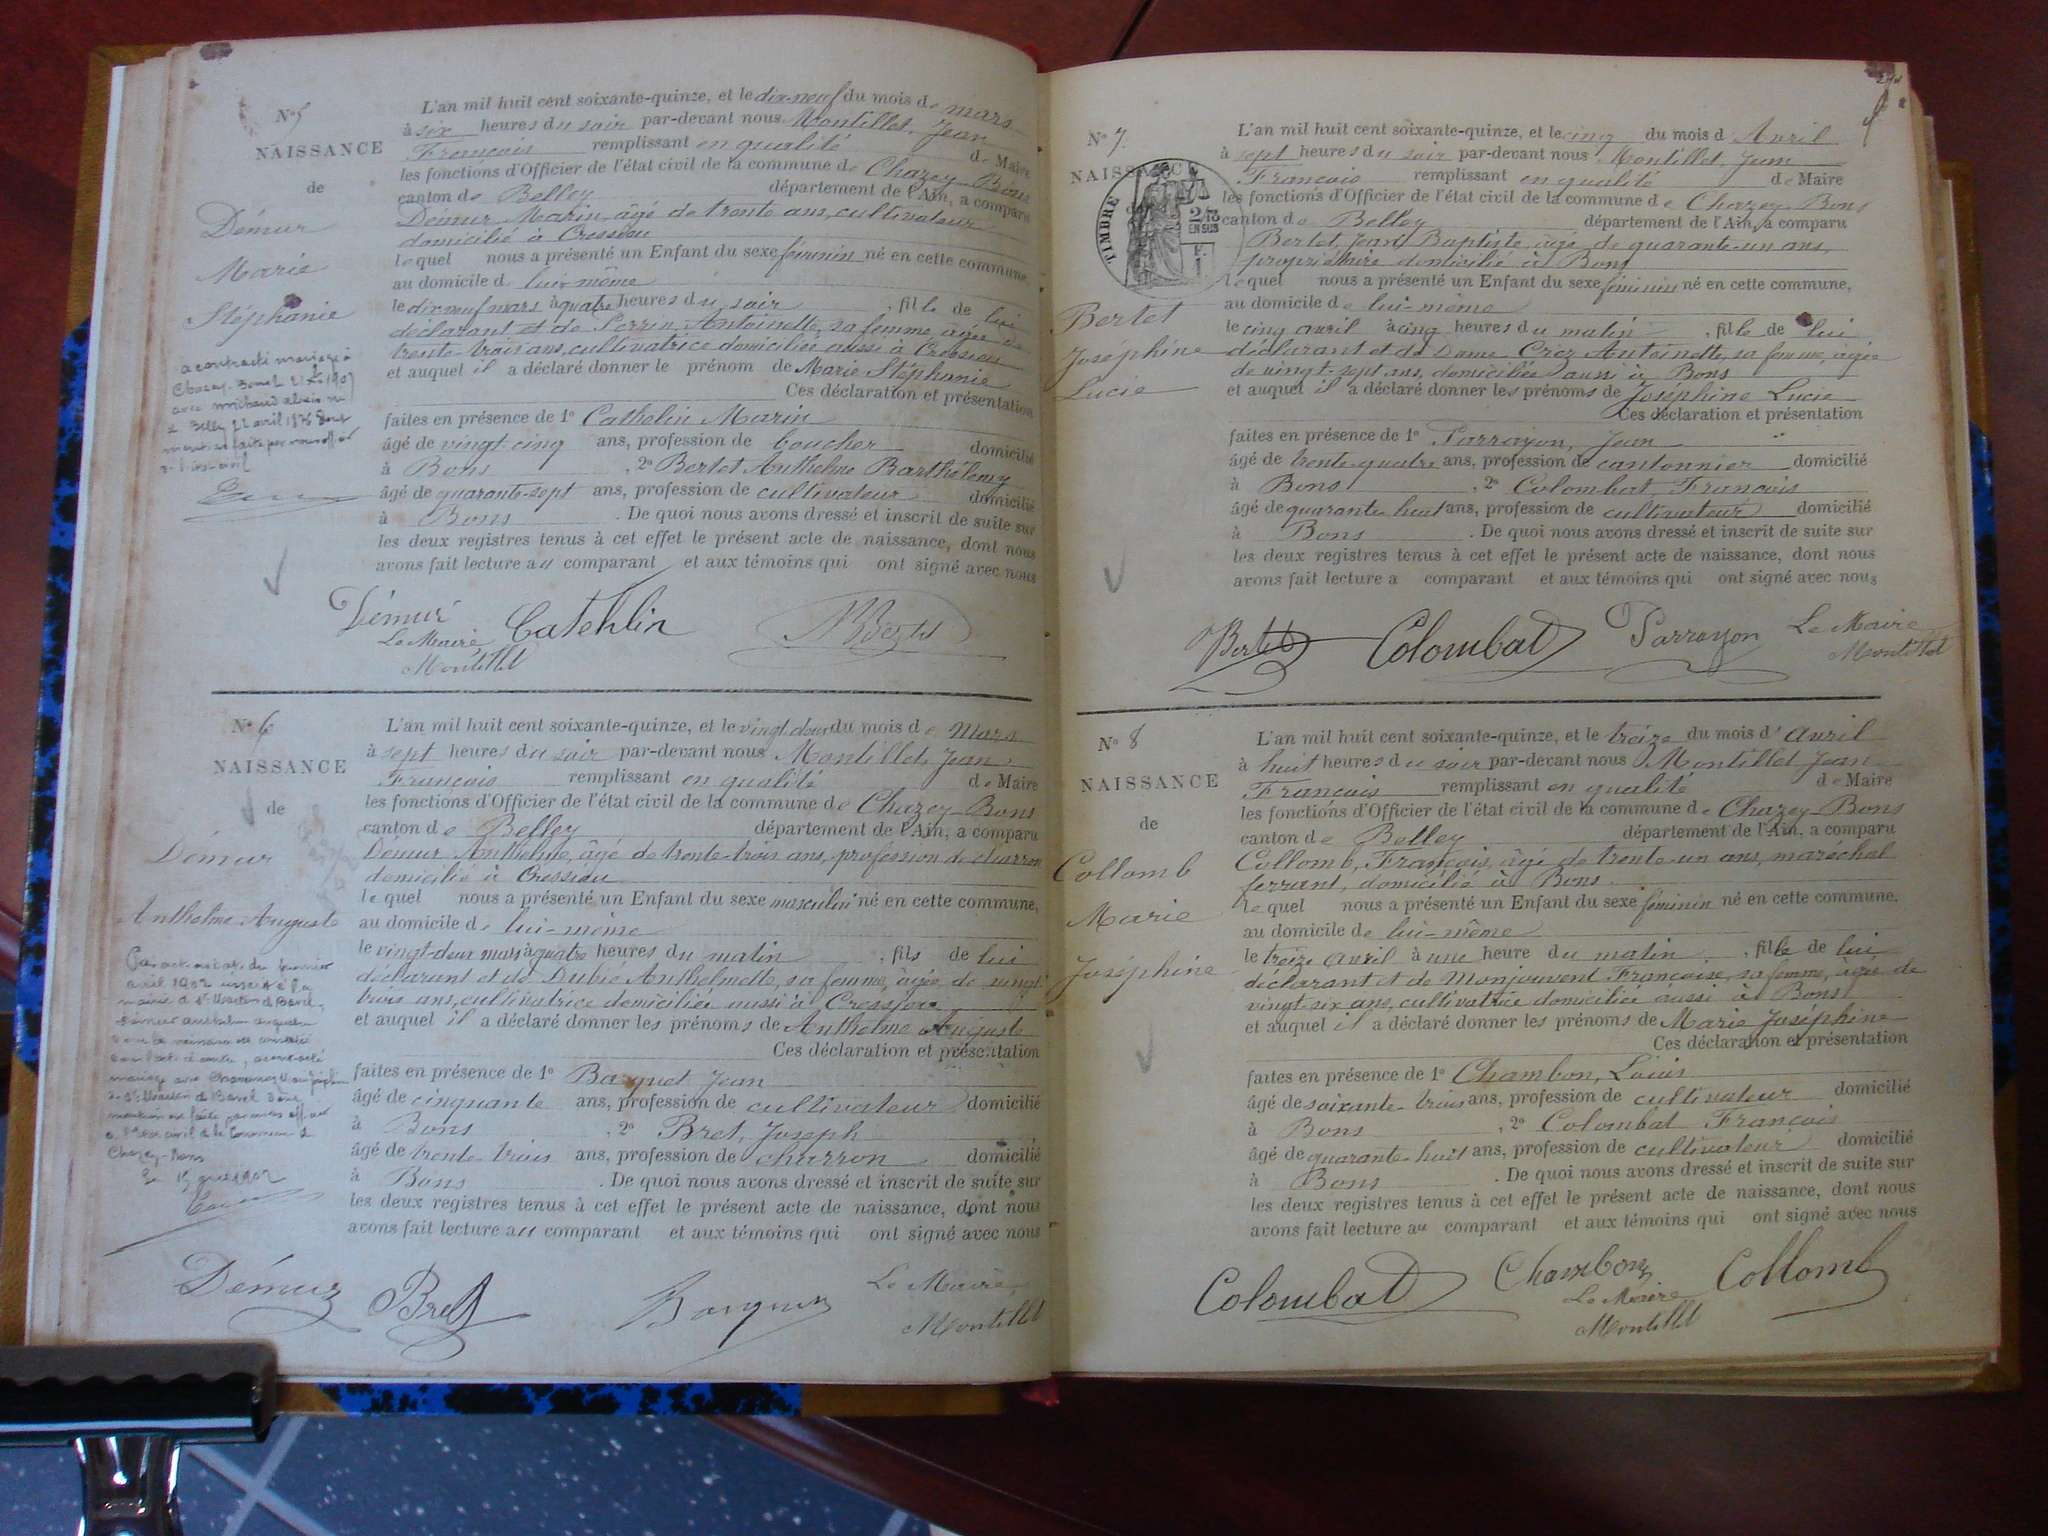 N° 5
NAISSANCE
de
Démur
Marie
Stéphanie
a contracté mariage à
Chazey-Bons le 21 1907
avec Michaud
à Belley 22 avril 1876
L'an mil huit cent soixante-quinze, et le dix-neuf du mois de mars
à six heures du soir par-devant nous Montillet, Jean
François remplissant en qualité de Maire
les fonctions d'Officier de l'état civil de la commune de Chazey-Bons
canton de Belley département de l'Ain, a comparu
Démur Marin, âgé de trente ans, cultivateur
domicilié à Cressieu
lequel nous a présenté un Enfant du sexe féminin né en cette commune,
au domicile de lui-même
le dix neuf mars à quatre heures du soir, fille de lui
déclarant et de Perrin, Antoinette, sa femme, âgée de
trente-trois ans, cultivatrice domiciliée aussi à Cressieu
et auquel il a déclaré donner le prénom de Marie Stéphanie
Ces déclaration et présentation
faites en présence de 1° Cathelin Marin
âgé de vingt-cinq ans, profession de boucher domicilié
à Bons, 2° Bertet Anthelme Barthélemy
âgé de quarante-sept ans, profession de cultivateur domicilié
à Bons. De quoi nous avons dressé et inscrit de suite sur
les deux registres tenus à cet effet le présent acte de naissance, dont nous
avons fait lecture au comparant et aux témoins qui ont signé avec nous
Démur Catehlin
Le Maire
Montillet
N° 6
NAISSANCE
de
Démur
Anthelme Auguste
L'an mil huit cent soixante-quinze, et le vingt-deux du mois de Mars
à sept heures du soir par-devant nous Montillet, Jean
François remplissant en qualité de Maire
les fonctions d'Officier de l'état civil de la commune de Chazey-Bons
canton de Belley département de l'Ain, a comparu
Démur Anthelme, âgé de trente-trois ans, profession de charron
domicilié à Cressieu
lequel nous a présenté un Enfant du sexe masculin né en cette commune,
au domicile de lui-même
le vingt-deux mars à quatre heures du matin, fils de lui
déclarant et de Dubié Anthelmette, sa femme, âgée de vingt
trois ans, cultivatrice domiciliée aussi à Cressieu
et auquel il a déclaré donner les prénoms de Anthelme Auguste
Ces déclaration et présentation
faites en présence de 1° Basquet Jean
âgé de cinquante ans, profession de cultivateur domicilié
à Bons, 2° Bret, Joseph
âgé de trente-trois ans, profession de charron domicilié
à Bons. De quoi nous avons dressé et inscrit de suite sur
les deux registres tenus à cet effet le présent acte de naissance, dont nous
avons fait lecture au comparant et aux témoins qui ont signé avec nous
Démur Bret Le Maire
Montillet
N° 7
NAISSANCE
TIMBRE
2/10
EN SUS
Bertet
Joséphine
Lucie
L'an mil huit cent soixante-quinze, et le cinq du mois d Avril
à sept heures du soir par-devant nous Montillet, Jean
François remplissant en qualité de Maire
les fonctions d'Officier de l'état civil de la commune de Chazey-Bons
canton de Belley département de l'Ain, a comparu
Bertet, Jean Baptiste, âgé de quarante-un ans,
propriétaire domicilié à Bons
lequel nous a présenté un Enfant du sexe féminin né en cette commune,
au domicile de lui-même
le cinq avril à cinq heures du matin, fille de lui
déclarant et de Dame Croz Antoinette, sa femme, âgée
de vingt-sept ans, domiciliée aussi à Bons
et auquel il a déclaré donner les prénoms de Joséphine Lucie
Ces déclaration et présentation
faites en présence de 1° Parrayon, Jean
âgé de trente-quatre ans, profession de cantonnier domicilié
à Bons, 2° Colombat, François
âgé de quarante huit ans, profession de cultivateur domicilié
à Bons. De quoi nous avons dressé et inscrit de suite sur
les deux registres tenus à cet effet le présent acte de naissance, dont nous
avons fait lecture a comparant et aux témoins qui ont signé avec nous
Bertet Colombat Parrayon Le Maire
Montillet
N° 8
NAISSANCE
de
Collomb
Marie
Joséphine
L'an mil huit cent soixante-quinze, et le treize du mois d' avril
à huit heures du soir par-devant nous Montillet Jean
François remplissant en qualité de Maire
les fonctions d'Officier de l'état civil de la commune de Chazey-Bons
canton de Belley département de l'Ain, a comparu
Collomb, François, âgé de trente-un ans, maréchal
ferrant, domicilié à Bons
lequel nous a présenté un Enfant du sexe féminin né en cette commune.
au domicile de lui-même
le treize avril à une heure du matin, fille de lui
déclarant et de Monjouvent Françoise, sa femme, âgée de
vingt-six ans, cultivatrice domiciliée aussi à Bons
et auquel il a déclaré donner les prénoms de Marie Joséphine
Ces déclaration et présentation
faites en présence de 1° Chambon, Louis
âgé de soixante-trois ans, profession de cultivateur domicilié
à Bons, 2° Colombat François
âgé de quarante-huit ans, profession de cultivateur domicilié
à Bons. De quoi nous avons dressé et inscrit de suite sur
les deux registres tenus à cet effet le présent acte de naissance, dont nous
avons fait lecture au comparant et aux témoins qui ont signé avec nous
Colombat Chambon Collomb
Le Maire
Montillet